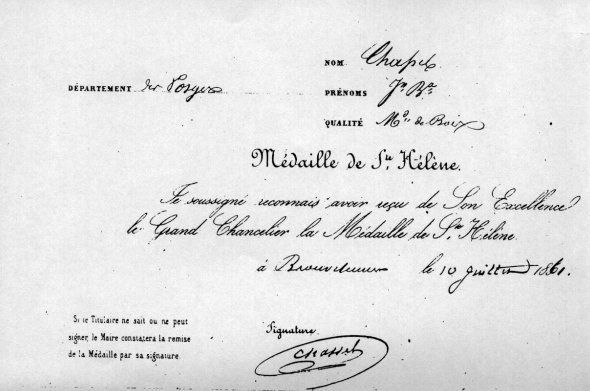 NOM Chapel
DÉPARTEMENT des Vosges
PRÉNOMS Jn Bte
QUALITÉ Md de Bois
Médaille de Ste Hélène.
Je soussigné reconnais avoir reçu de Son Excellence
le Grand Chancelier la Médaille de Ste Hélène.
à le 10 juillet 1861.
Si le Titulaire ne sait ou ne peut
signer, le Maire constatera la remise
de la Médaille par sa signature.
Signature.